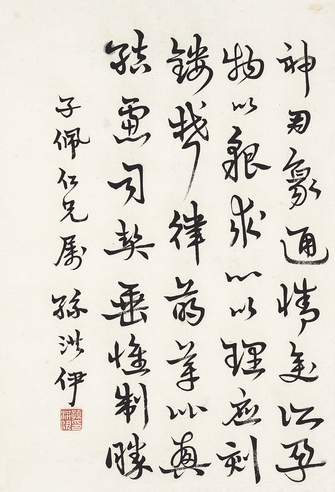 神用象通情變所孕
物以貌求心以理應刻
鏤聲律萌芽比興
結慮司契垂帷制勝
子佩仁兄屬 孫洪伊